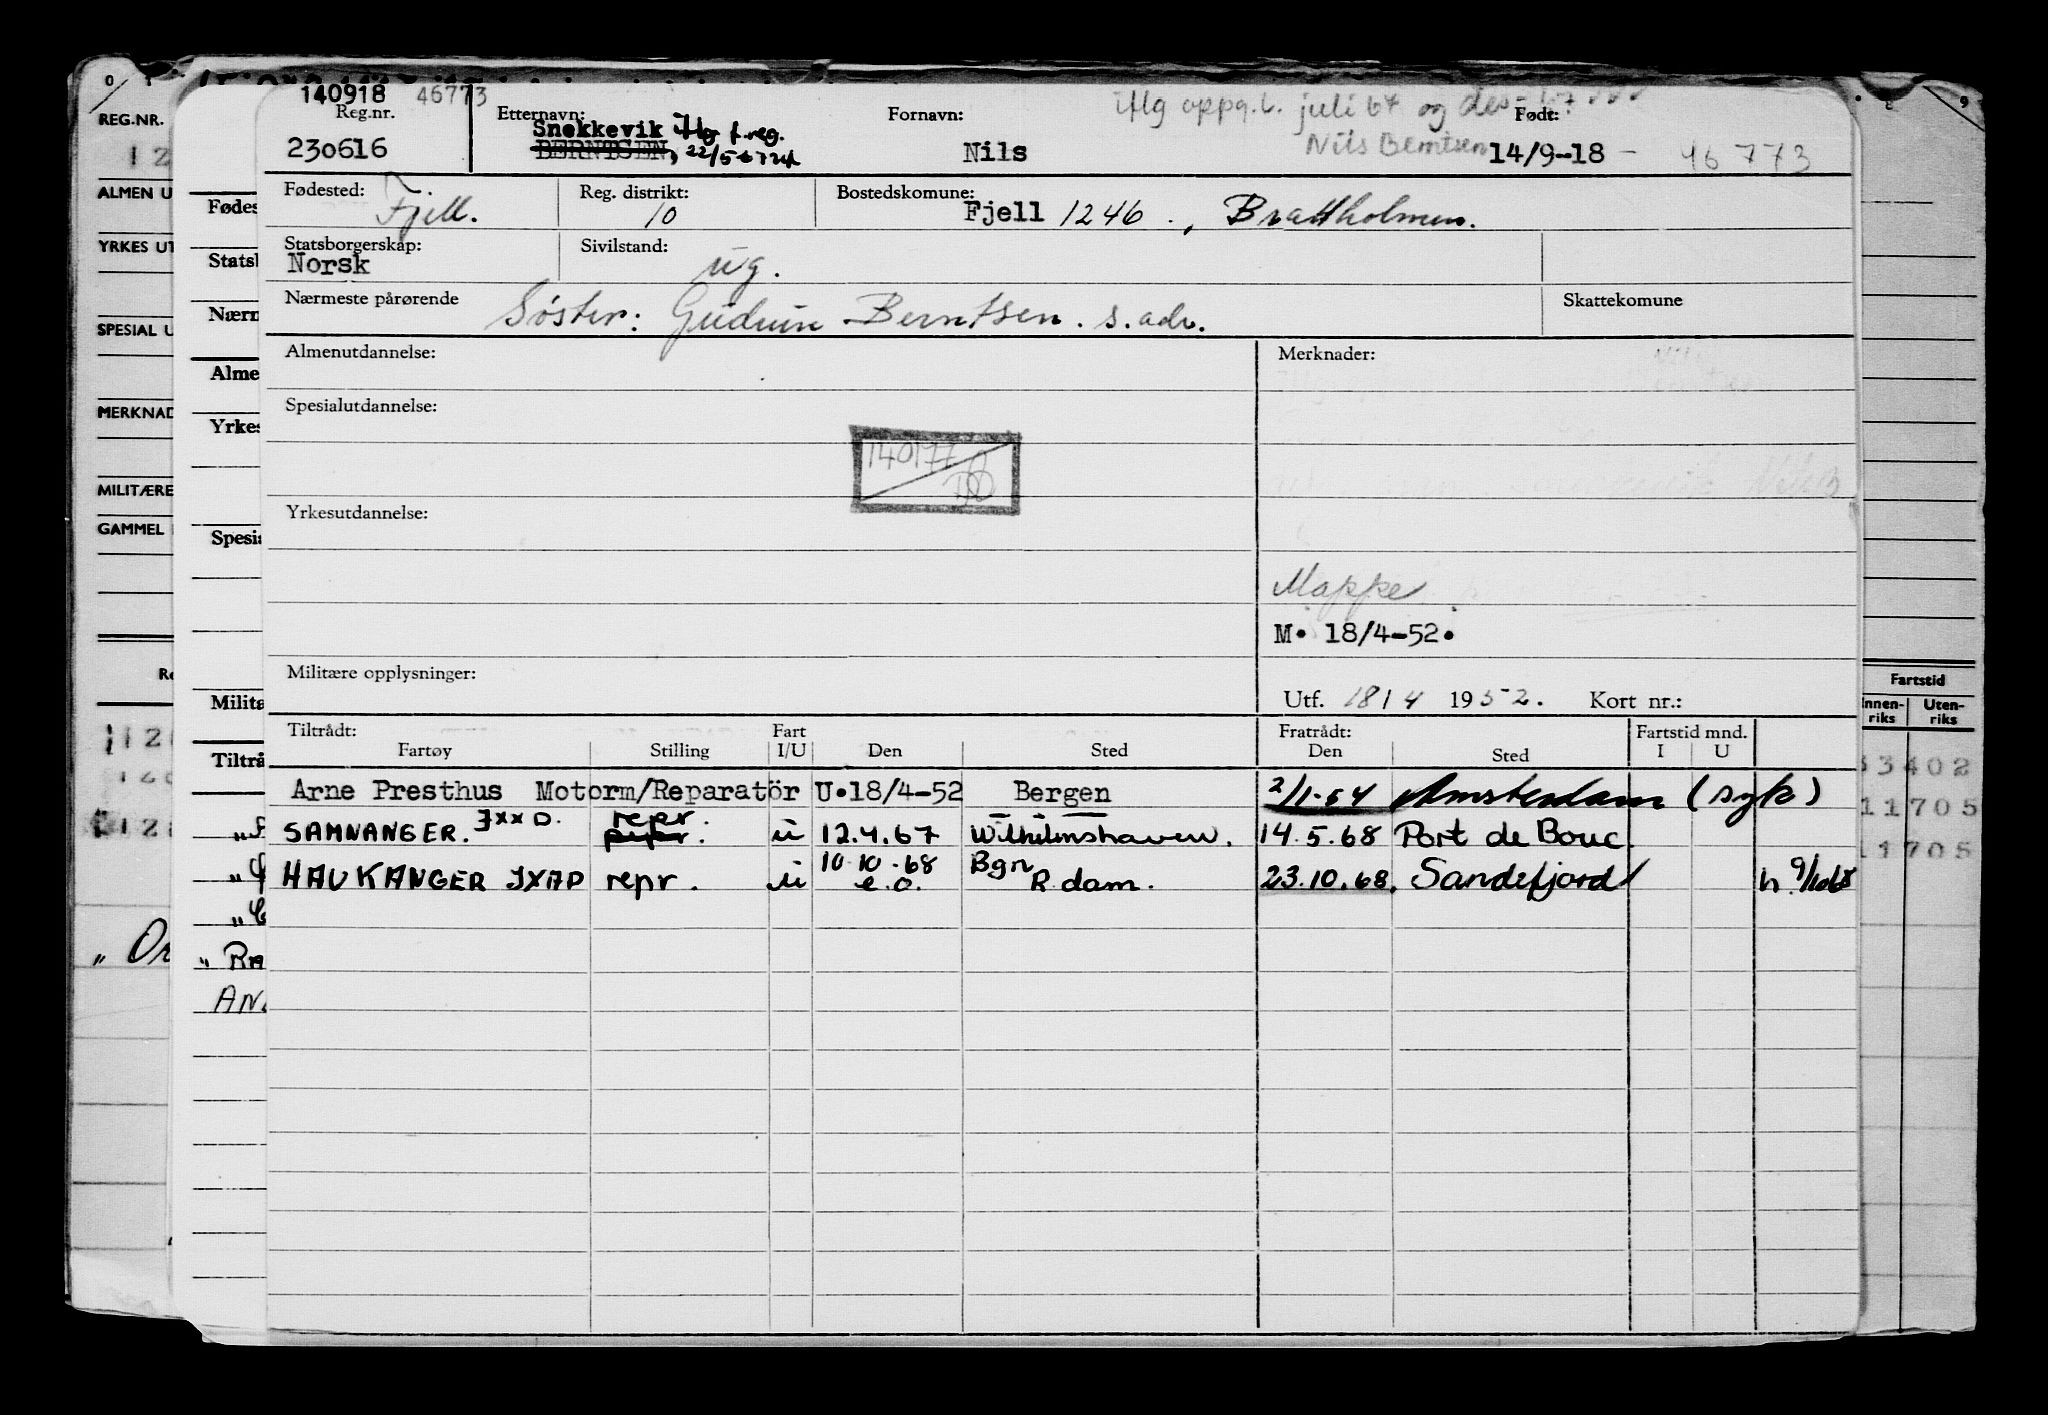 140918 46773
Reg.nr. Etternavn: Fornavn: Født:
iflg oppg. juli 67 og des-
230616 Snekkevik iflg f.reg.
BERNTSEN, 22/5-67 Nils Nils Berntsen 14/9-18 - 46773
Fødested: Fjell. Reg. distrikt: 10 Bostedskomune: Fjell 1246 ., Brattholmen.
Statsborgerskap: Norsk Sivilstand: ug.
Nærmeste pårørende Søster: Gudrun Berntsen. s.adr. Skattekomune
Almenutdannelse: Merknader:
Spesialutdannelse:
140177
Yrkesutdannelse:
Mappe
M. 18/4-52.
Militære opplysninger:
Utf. 18/4 1952. Kort nr.:
Tiltrådt: Fart Fratrådt: Fartstid mnd.
Fartøy Stilling I/U Den Sted Den Sted I U
Arne Presthus Motorm/Reparatör U.18/4-52 Bergen 2/1-54 Amsterdam (syk)
SAMNANGER. JXXD. repr. u 12.4.67 Wilhelmshaven. 14.5.68 Port de Bouc.
HAUKANGER JXAD repr. u 10.10.68 Bgn 23.10.68. Sandefjord
e.o. R.dam.
REG.NR.
12
ALMEN U
YRKES UT
SPESIAL U
MERKNAD
MILITÆRE
GAMMEL
Fødes
Statsb
Nærm
Alme
Yrkes
Spesia
Milita
Tiltrå
„ RA
Fartstid
Innen-riks Uten-riks
33402
11705
11705